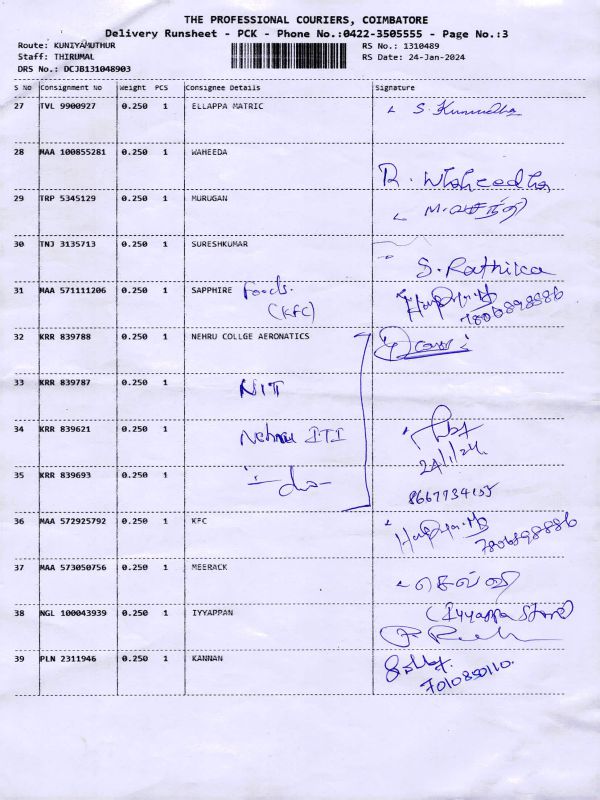 THE PROFESSIONAL COURIERS, COIMBATORE
Delivery Runsheet - PCK - Phone No.:0422-3505555 - Page No.:3
Route: KUNIYAMUTHUR RS No.: 1310489
Staff: THIRUMAL RS Date: 24-Jan-2024
DRS No.: DCJB131048903
S No Consignment No Weight PCS Consignee Details Signature
27 TVL 9900927 0.250 1 ELLAPPA MATRIC
28 MAA 100855281 0.250 1 WAHEEDA
R. Waheedha
29 TRP 5345129 0.250 1 MURUGAN
30 TNJ 3135713 0.250 1 SURESHKUMAR
S. Rathika
31 MAA 571111206 0.250 1 SAPPHIRE Foods.
(KFC)
7806898886
32 KRR 839788 0.250 1 NEHRU COLLGE AERONATICS
33 KRR 839787 0.250 1
NIT
34 KRR 839621 0.250 1
Nehru ITI
24/1/24
35 KRR 839693 0.250 1
-do-
36 MAA 572925792 0.250 1 KFC
7806898886
37 MAA 573050756 0.250 1 MEERACK
செல்வி
38 NGL 100043939 0.250 1 IYYAPPAN (Iyyappa Store)
39 PLN 2311946 0.250 1 KANNAN